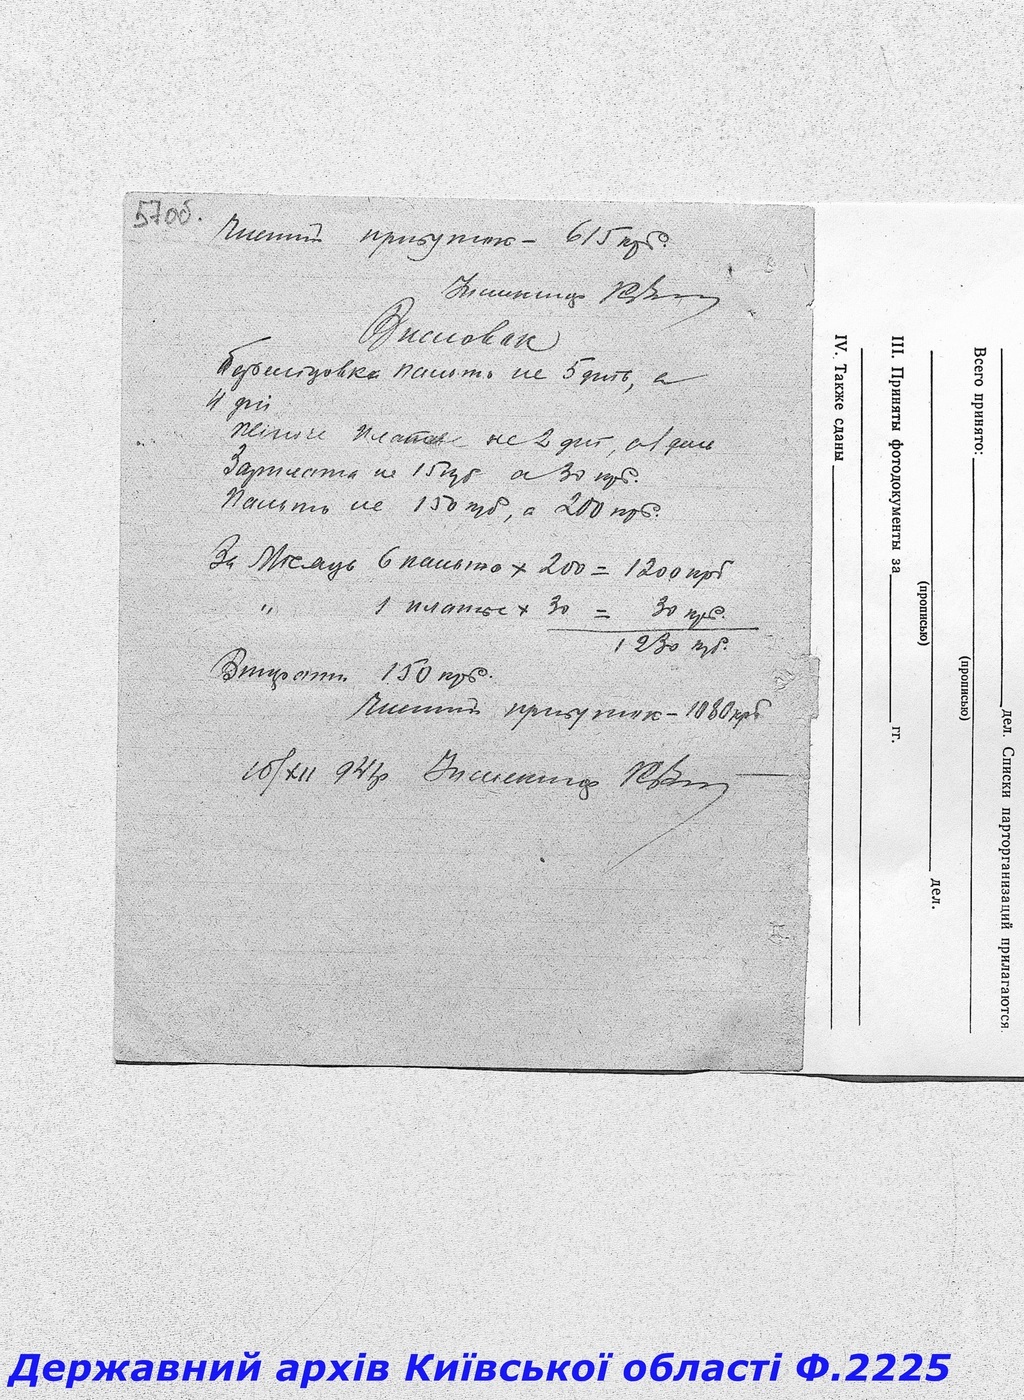 57об.
Чистий прибуток – 615 крб.
Інспектор
Висновок
пальто не 5 днів, а
4 дні
плаття не 2 дні, а 1 день
Зарплата не 15 крб а 30 крб.
Пальто не 150 крб, а 200 крб.
За Місяць 6 пальто × 200 = 1200 крб
" 1 платье × 30 = 30 крб.
1230 крб.
Втрати 150 крб.
Чистий прибуток – 1080 крб
10/XII 941р Інспектор
Всего принято:
дел. Списки парторганизаций прилагаются.
(прописью)
III. Приняты фотодокументы за гг. дел.
(прописью)
IV. Также сданы
Державний архів Київської області Ф.2225